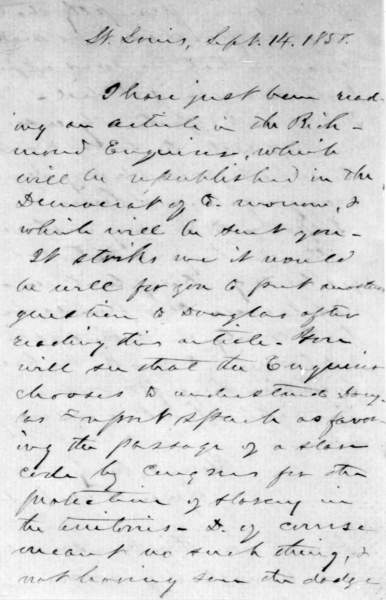 St. Louis, Sept. 14. 1858.
I have just been read-
ing an article in the Rich-
mond Enquirer, which
will be republished in the
Democrat of to morrow, &
which will be sent you -
It strikes me it would
be well for you to put another
question to Douglas after
reading this article - You
will see that the Enquirer
chooses to understand Doug-
las' speech as favor
ing the passage of a slave
code by Congress for the
protection of slavery in
the territories - D. of course
meant no such thing, &
not having seen the dodge